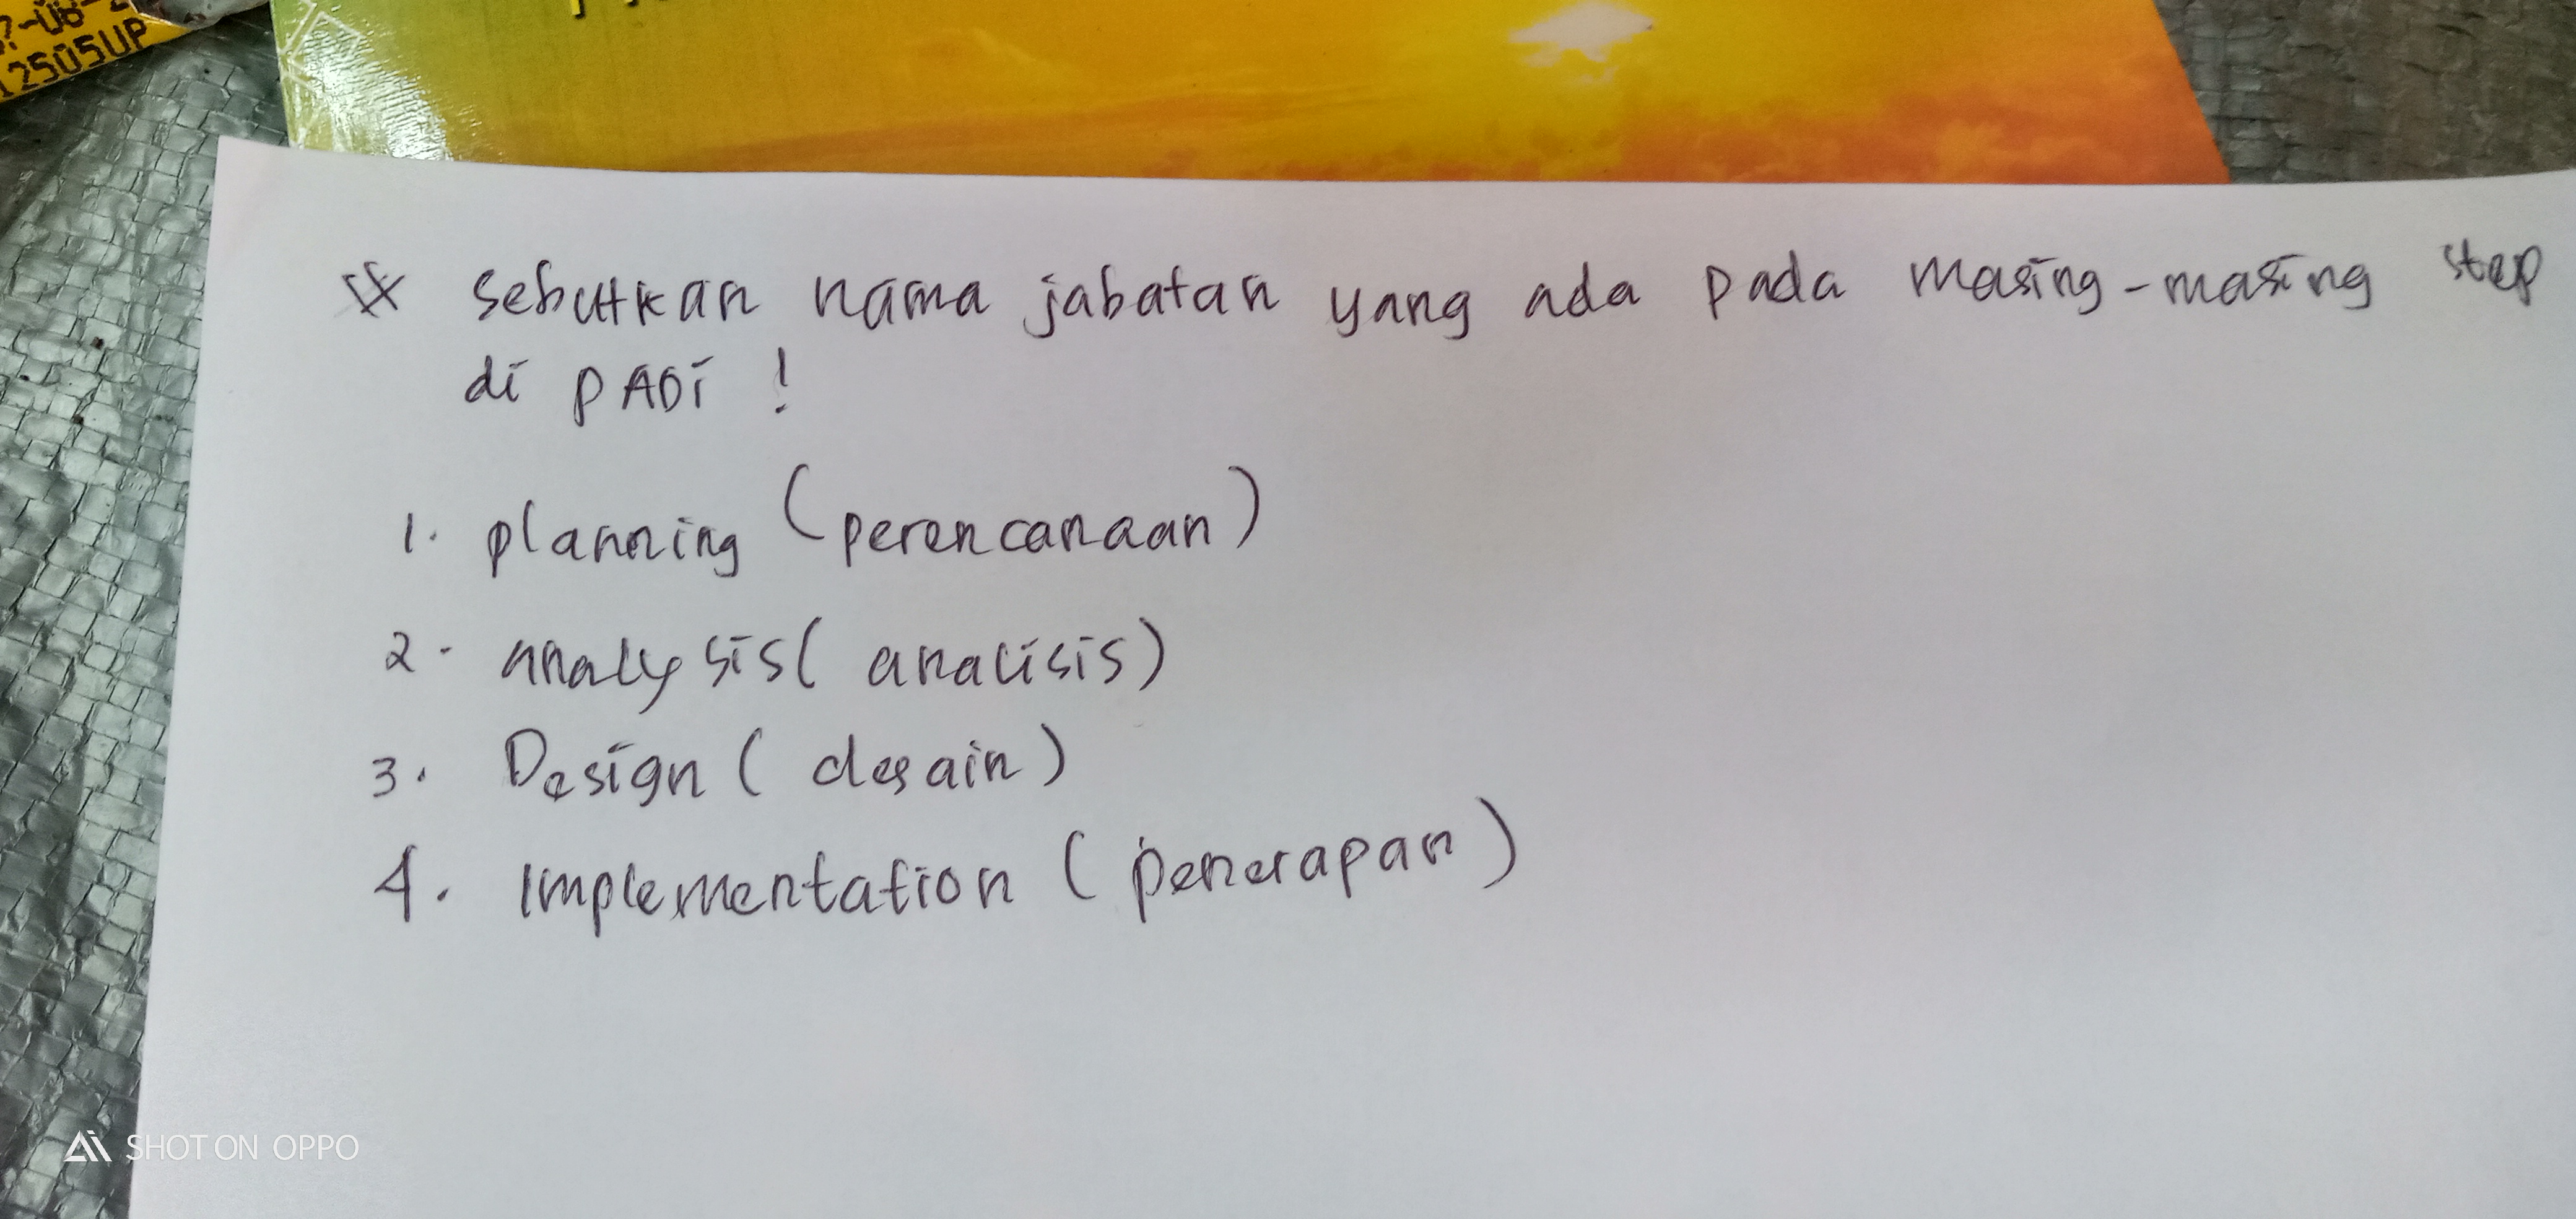 ?-06-2
12505UP
※ Sebutkan nama jabatan yang ada pada masing-masing step
di PADI !
1. planning (perencanaan)
2. analysis ( analisis)
3. Design ( desain )
4. Implementation ( penerapan )
Ai SHOT ON OPPO